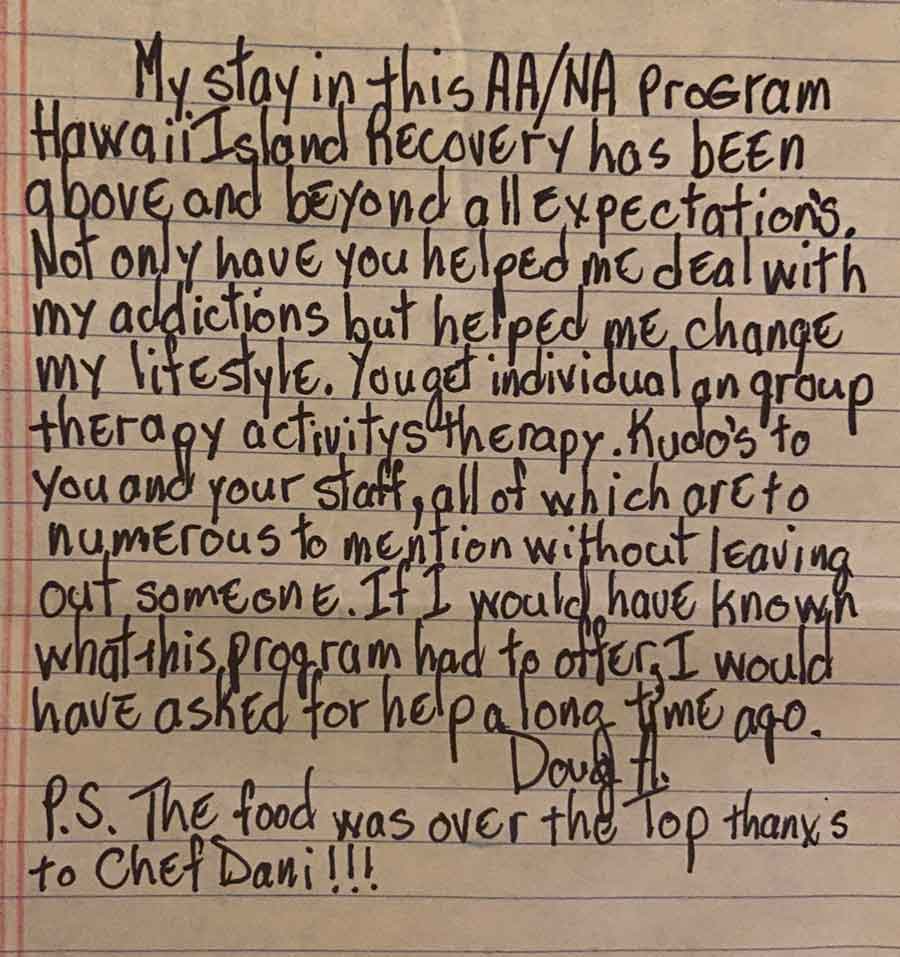 My stay in this AA/NA Program
Hawaii Island Recovery has been
above and beyond all expectation's.
Not only have you helped me deal with
my addictions but helped me change
my lifestyle. You get individual an group
therapy activitys therapy. Kudo's to
you and your staff, all of which are to
numerous to mention without leaving
out someone. If I would have known
what this program had to offer, I would
have asked for help a long time ago.
Doug H.
P.S. The food was over the Top thanx's
to Chef Dani!!!